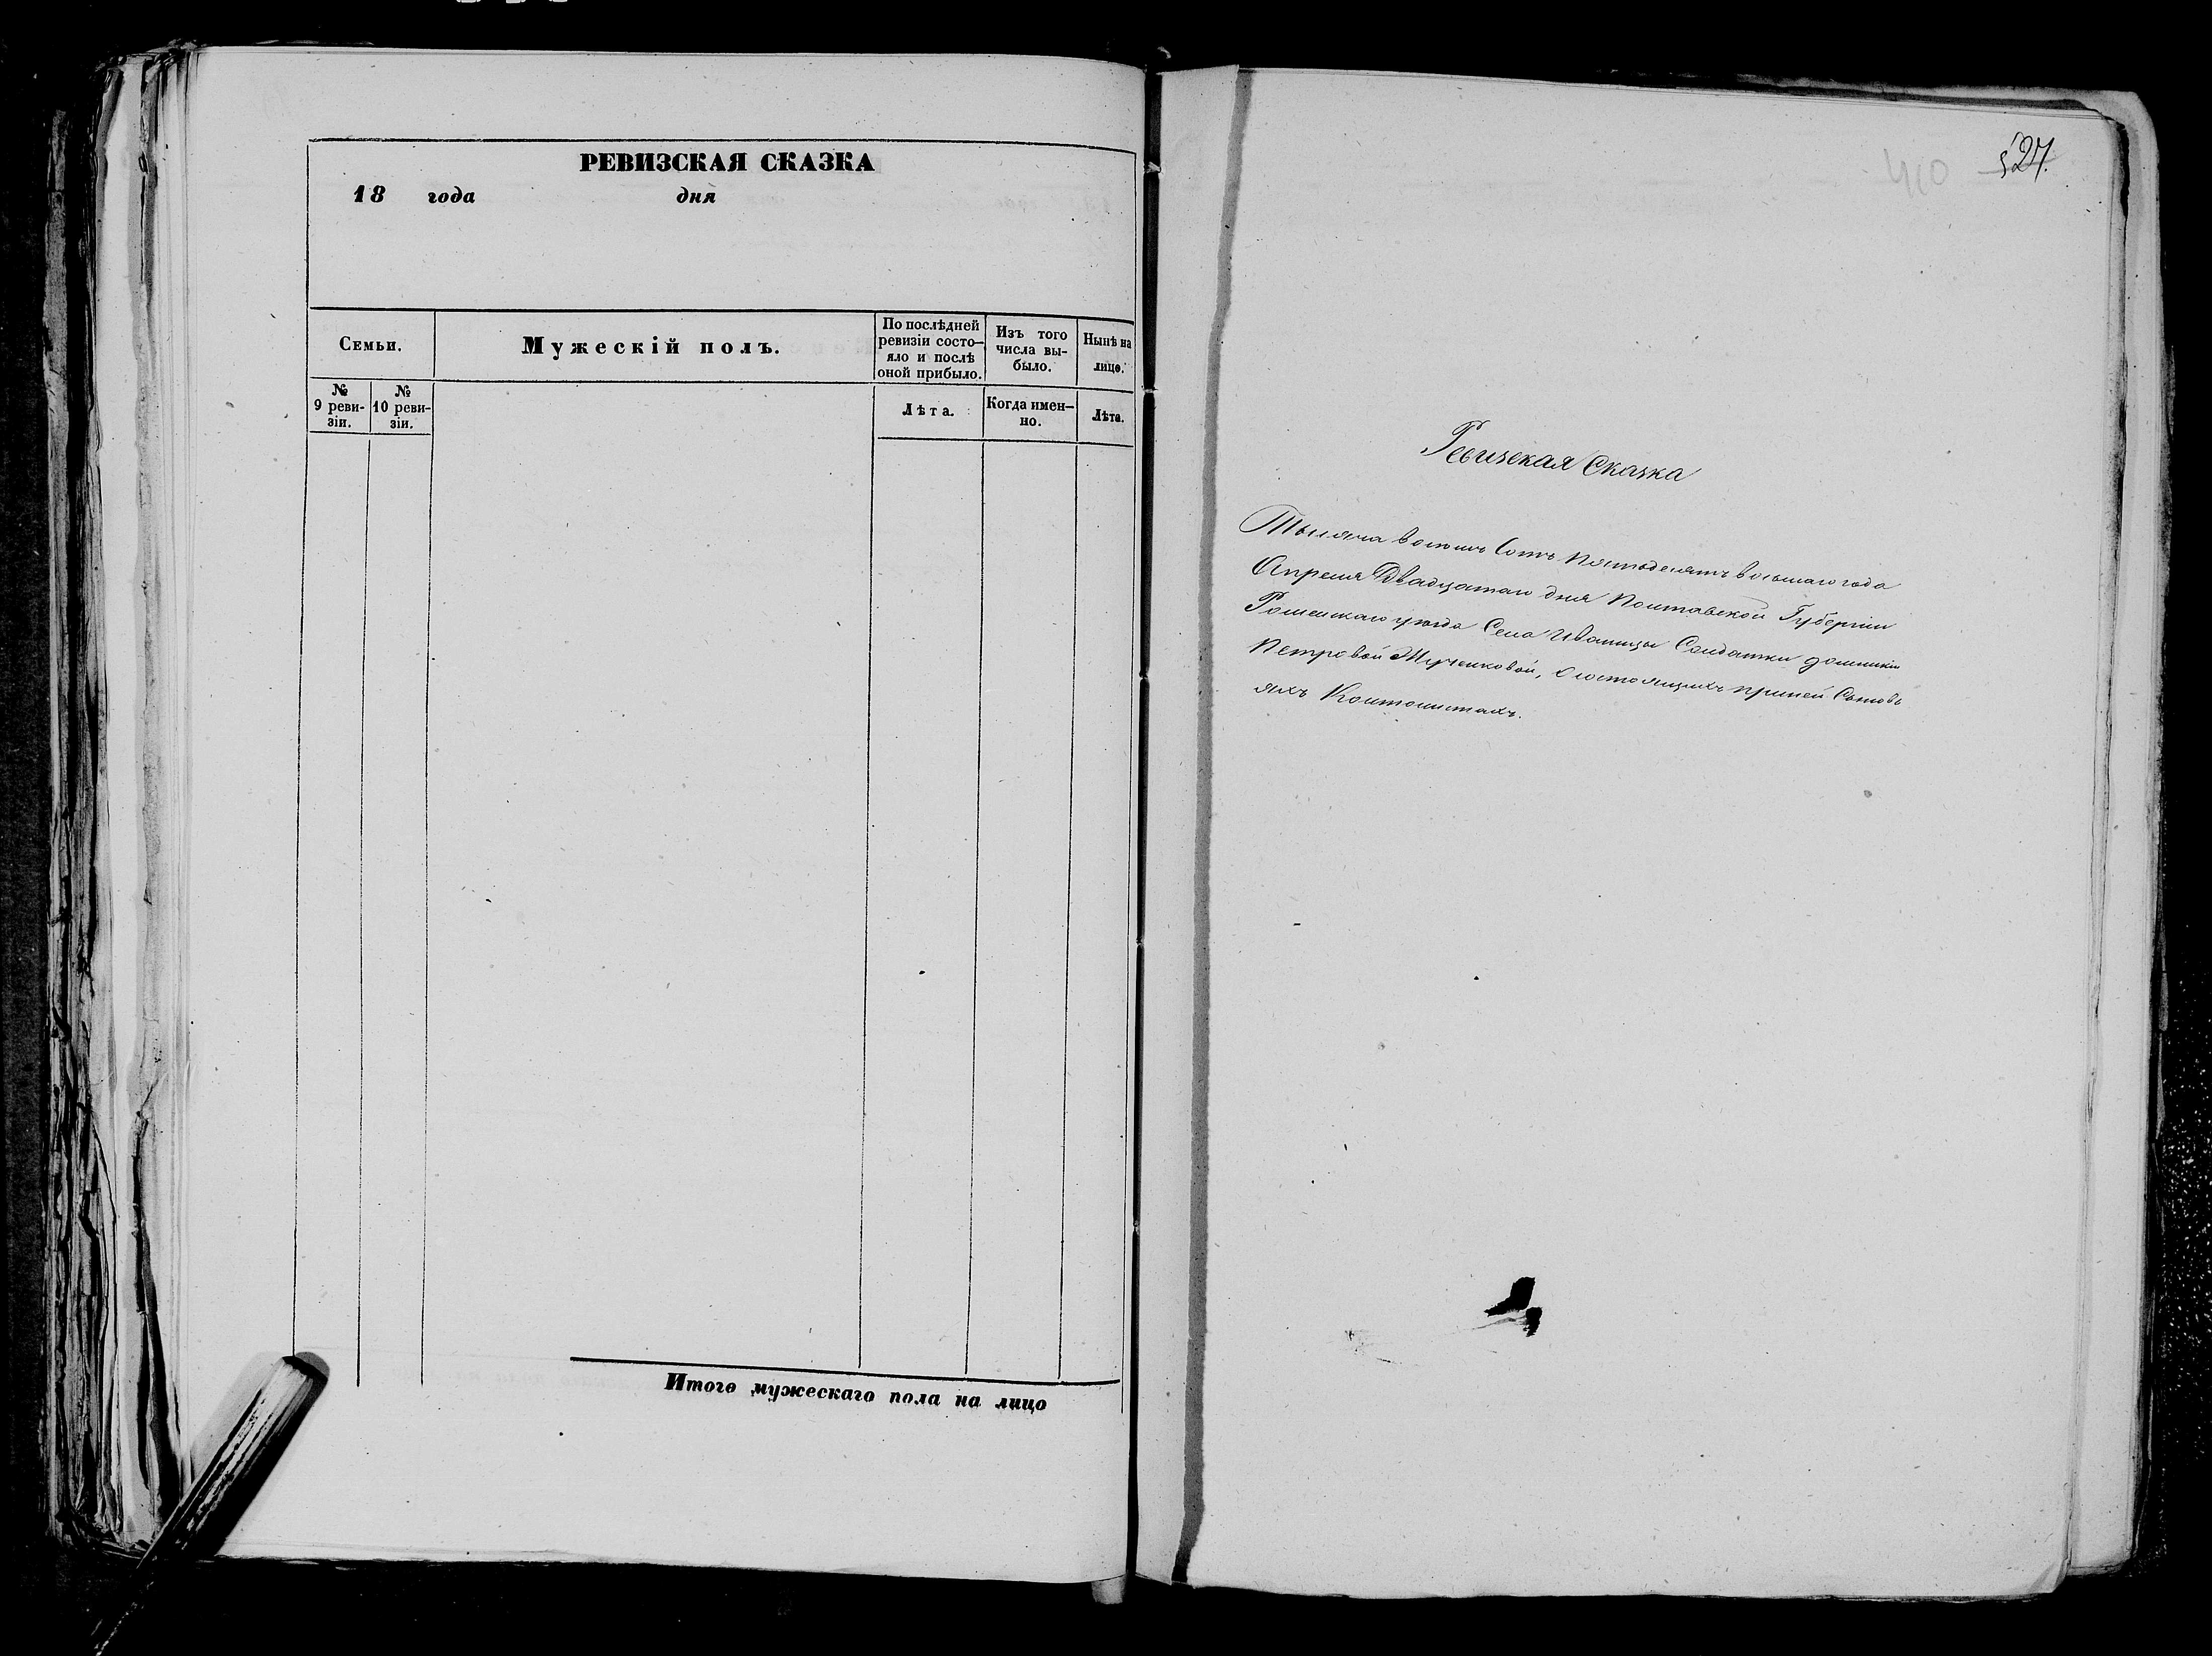 РЕВИЗСКАЯ СКАЗКА
18 года дня
Семьи.
Мужескій полъ.
По послѣдней
ревизіи состо-
яло и послѣ
оной прибыло.
Изъ того
числа вы-
было.
Нынѣ на
лицо.
№
9 реви-
зіи.
№
10 реви-
зіи.
Лѣта.
Когда имен-
но.
Лѣта.
Итого мужескаго пола на лицо
410
527.
Ревизская Сказка
Тысяча восемь Сотъ Пятьдесятъ восьмаго года
Апреля Двадцатаго дня Полтавской Губерніи
Роменскаго уезда Села Иваницы Солдатки
Петровой о состоящихъ при ней Сыновь
яхъ Кантонистахъ.